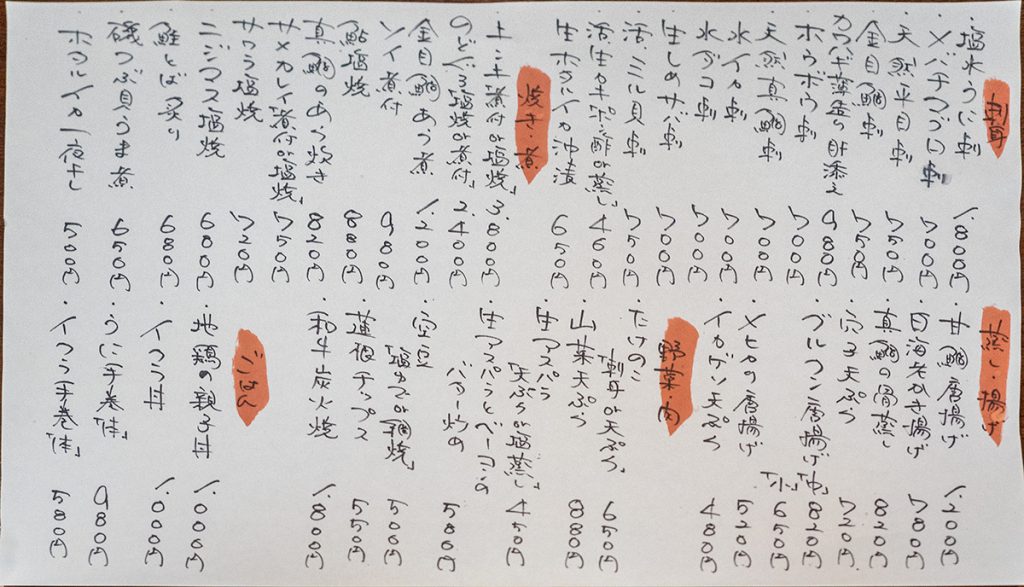 刺身
・塩水うに刺 1.800円
・メバチマグロ刺 700円
・天然平目刺 750円
・金目鯛刺 750円
・カワハギ薄造り肝添え 980円
・ホウボウ刺 700円
・天然真鯛刺 700円
・水イカ刺 700円
・水ダコ刺 700円
・生しめサバ刺 700円
・活ミル貝刺 750円
・活生カキポン酢or蒸し 460円
・生ホタルイカ沖漬 650円
焼き・煮
・上キンキ煮付or塩焼 3.800円
・のどぐろ塩焼or煮付 2.400円
・金目鯛あら煮 1.200円
・ソイ煮付 980円
・鮎塩焼 880円
・真鯛のあら炊き 820円
・サメカレイ煮付or塩焼 750円
・サワラ塩焼 720円
・ニジマス塩焼 600円
・鮭とば炙り 680円
・磯つぶ貝うま煮 650円
・ホタルイカ一夜干し 500円
蒸し・揚げ
・甘鯛唐揚げ 1.200円
・白海老かき揚げ 780円
・真鯛の骨蒸し 820円
・穴子天ぷら 720円
・ブルワン唐揚げ「中」 820円
「小」 650円
・メヒカリ唐揚げ 520円
・イカゲソ天ぷら 480円
野菜・肉
・たけのこ
「刺身or天ぷら」 650円
・山菜天ぷら 880円
・生アスパラ
天ぷらor塩蒸し 450円
・生アスパラとベーコンの
バター炒め 580円
・空豆
塩ゆでor網焼 500円
・蓮根チップス 550円
・和牛炭火焼 1.800円
ごはん
・地鶏の親子丼 1.000円
・イクラ丼 1.000円
・うに手巻「1本」 980円
・イクラ手巻「1本」 580円